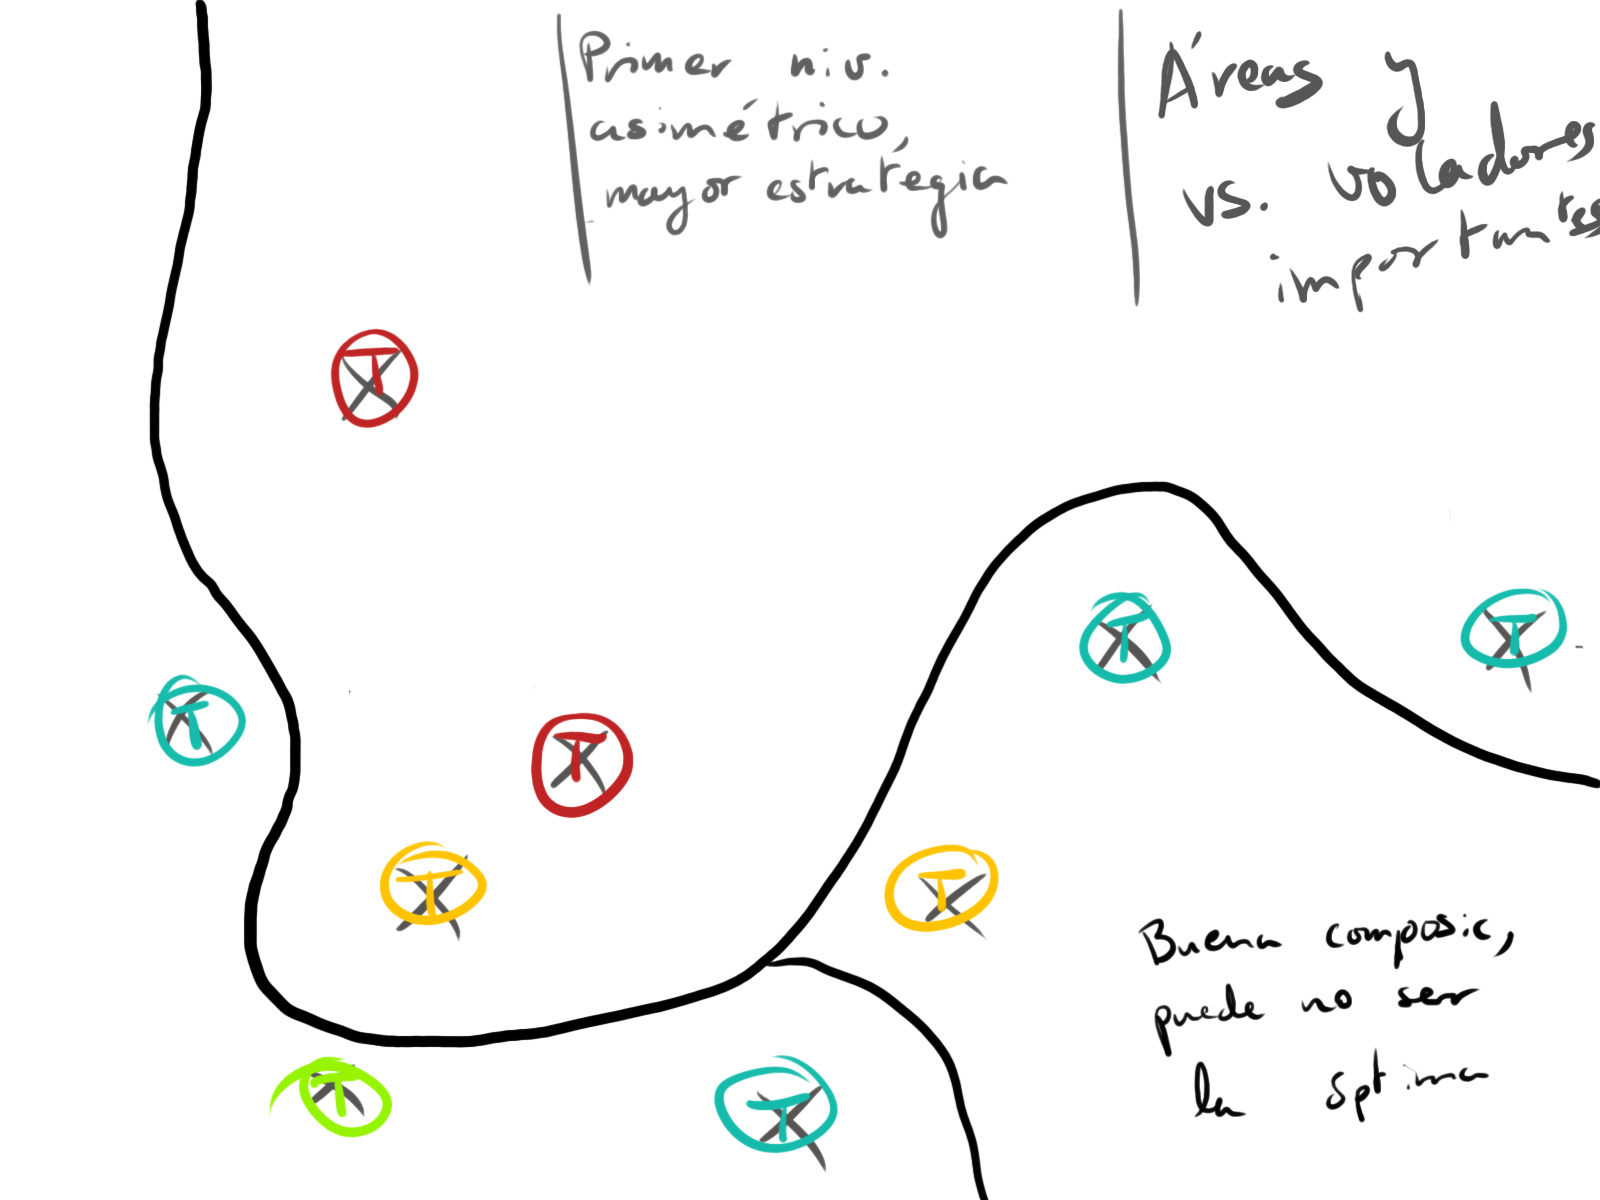 Primer niv.
asimétrico,
mayor estratégia
Áreas y
vs. voladores
importantes
T
T
T
T
T
T
T
T
T
Buena composic,
puede no ser
la óptima